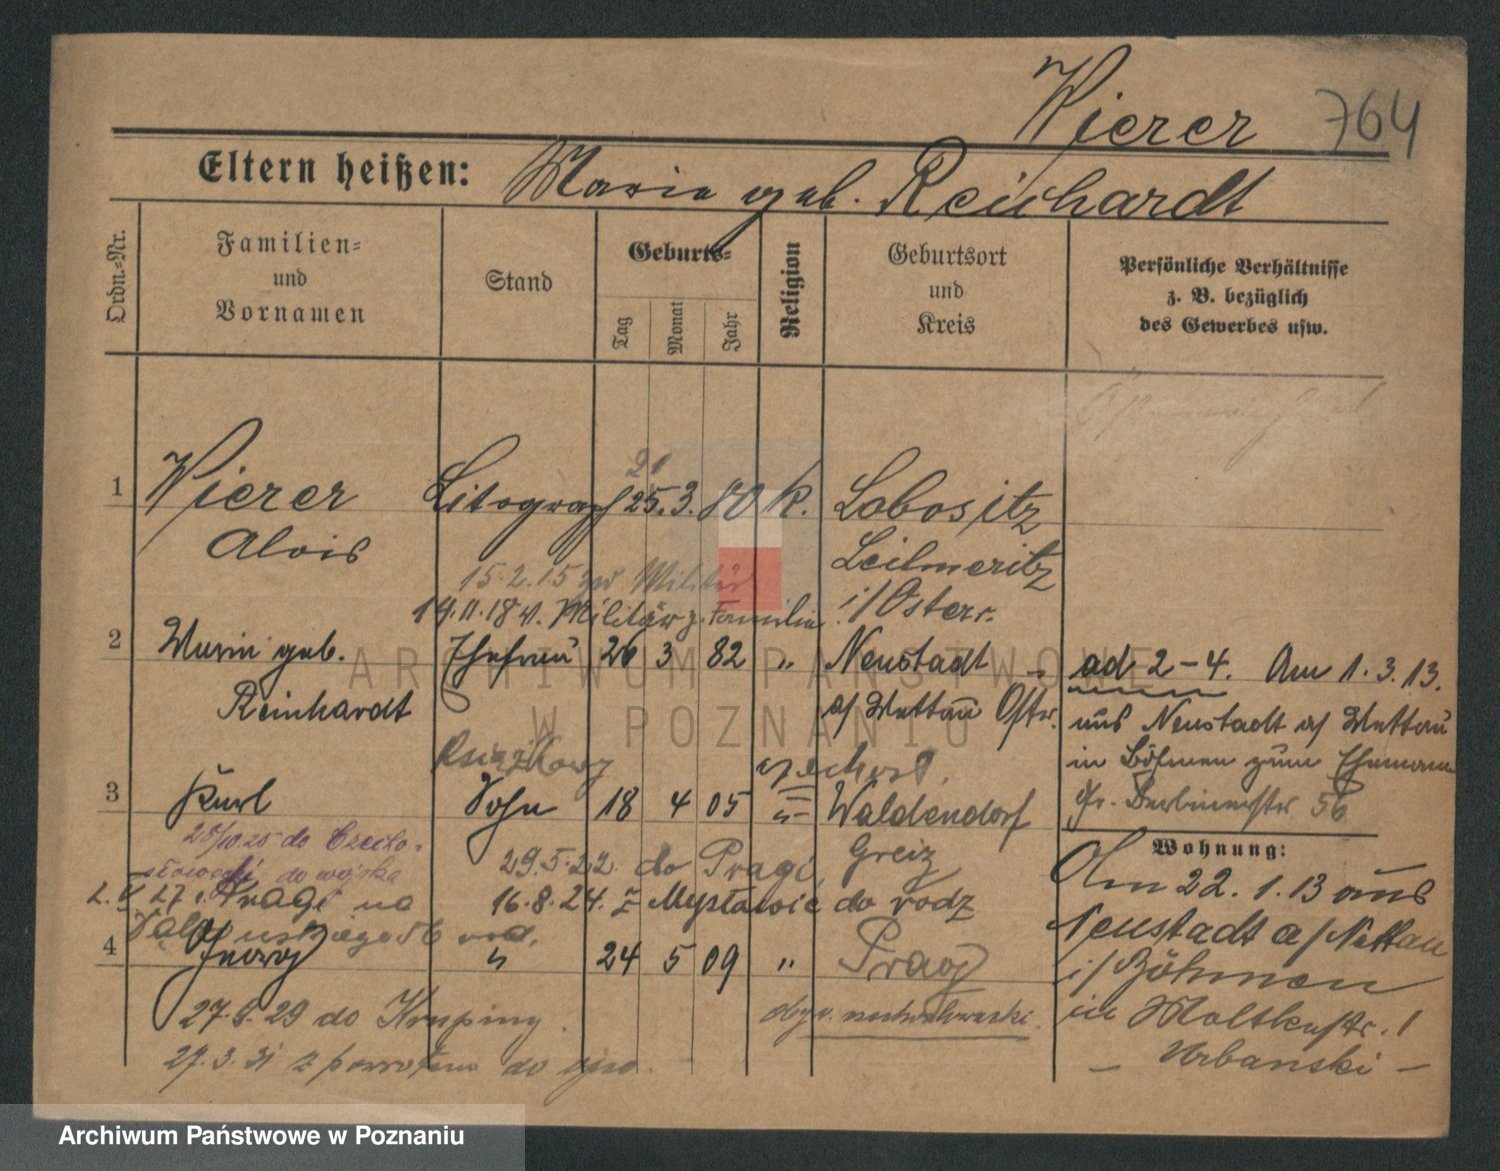 Wierer 764
Eltern heißen: Maria geb. Reinhardt
Ordn.=Nr.
Familien=
und
Vornamen
Stand
Geburts=
Tag
Monat
Jahr
Religion
Geburtsort
und
Kreis
Persönliche Verhältnisse
z. B. bezüglich
des Gewerbes usw.
21
1 Wierer Litograph 25. 3. 80 K. Lobositz
Alois Leitmeritz
15.2.15 zum Militär
i/Österr.
19.11.18 v. Militär z. Familie
2 Maria geb. Ehefrau 26 3 82 " Neustadt
Reinhardt
a/ Mettau Östr.
ad 2-4. Am 1.3.13.
aus Neustadt a/ Mettau
in Böhmen zum Ehemann
Gr. Berlinerstr 56
Książkowy
czechosł.
3 Karl Sohn 18 4 05 " Waldendorf
Greiz
28/10 25 do Czecho-
słowacji do wojska
29.5.22. do Pragi
16.8.24. z Mysłowic do rodz
4 Georg " 24 5 09 " Prag
27.8.29 do
27.3.31 z powrotem do ojca.
Wohnung:
Am 22.1.13 aus
Neustadt a/ Mettau
i/ Böhmen
in Moltkestr. 1
- Urbanski -
ARCHIWUM PAŃSTWOWE
W POZNANIU
Archiwum Państwowe w Poznaniu